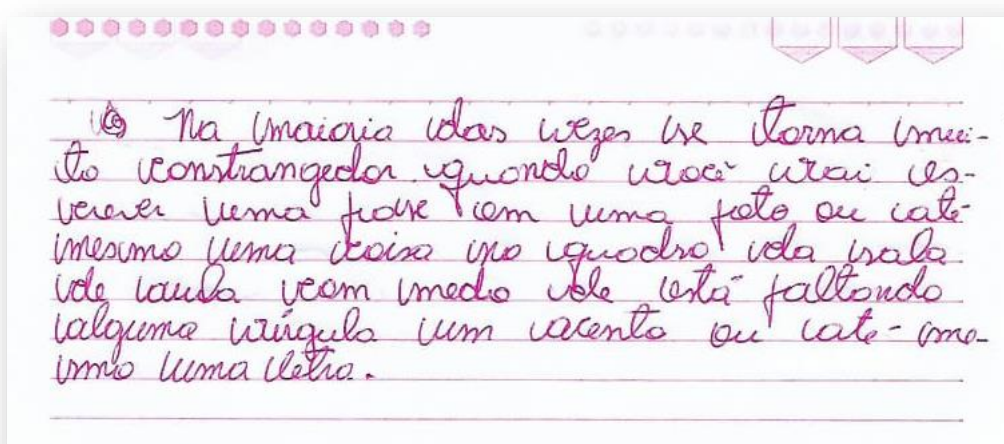 Na maioria das vezes se torna mui-
to constrangedor quando você vai es-
crever uma frase em uma foto ou até
mesmo uma coisa no quadro da sala
de aula com medo de está faltando
alguma vírgula um acento ou até-me-
smo uma letra.